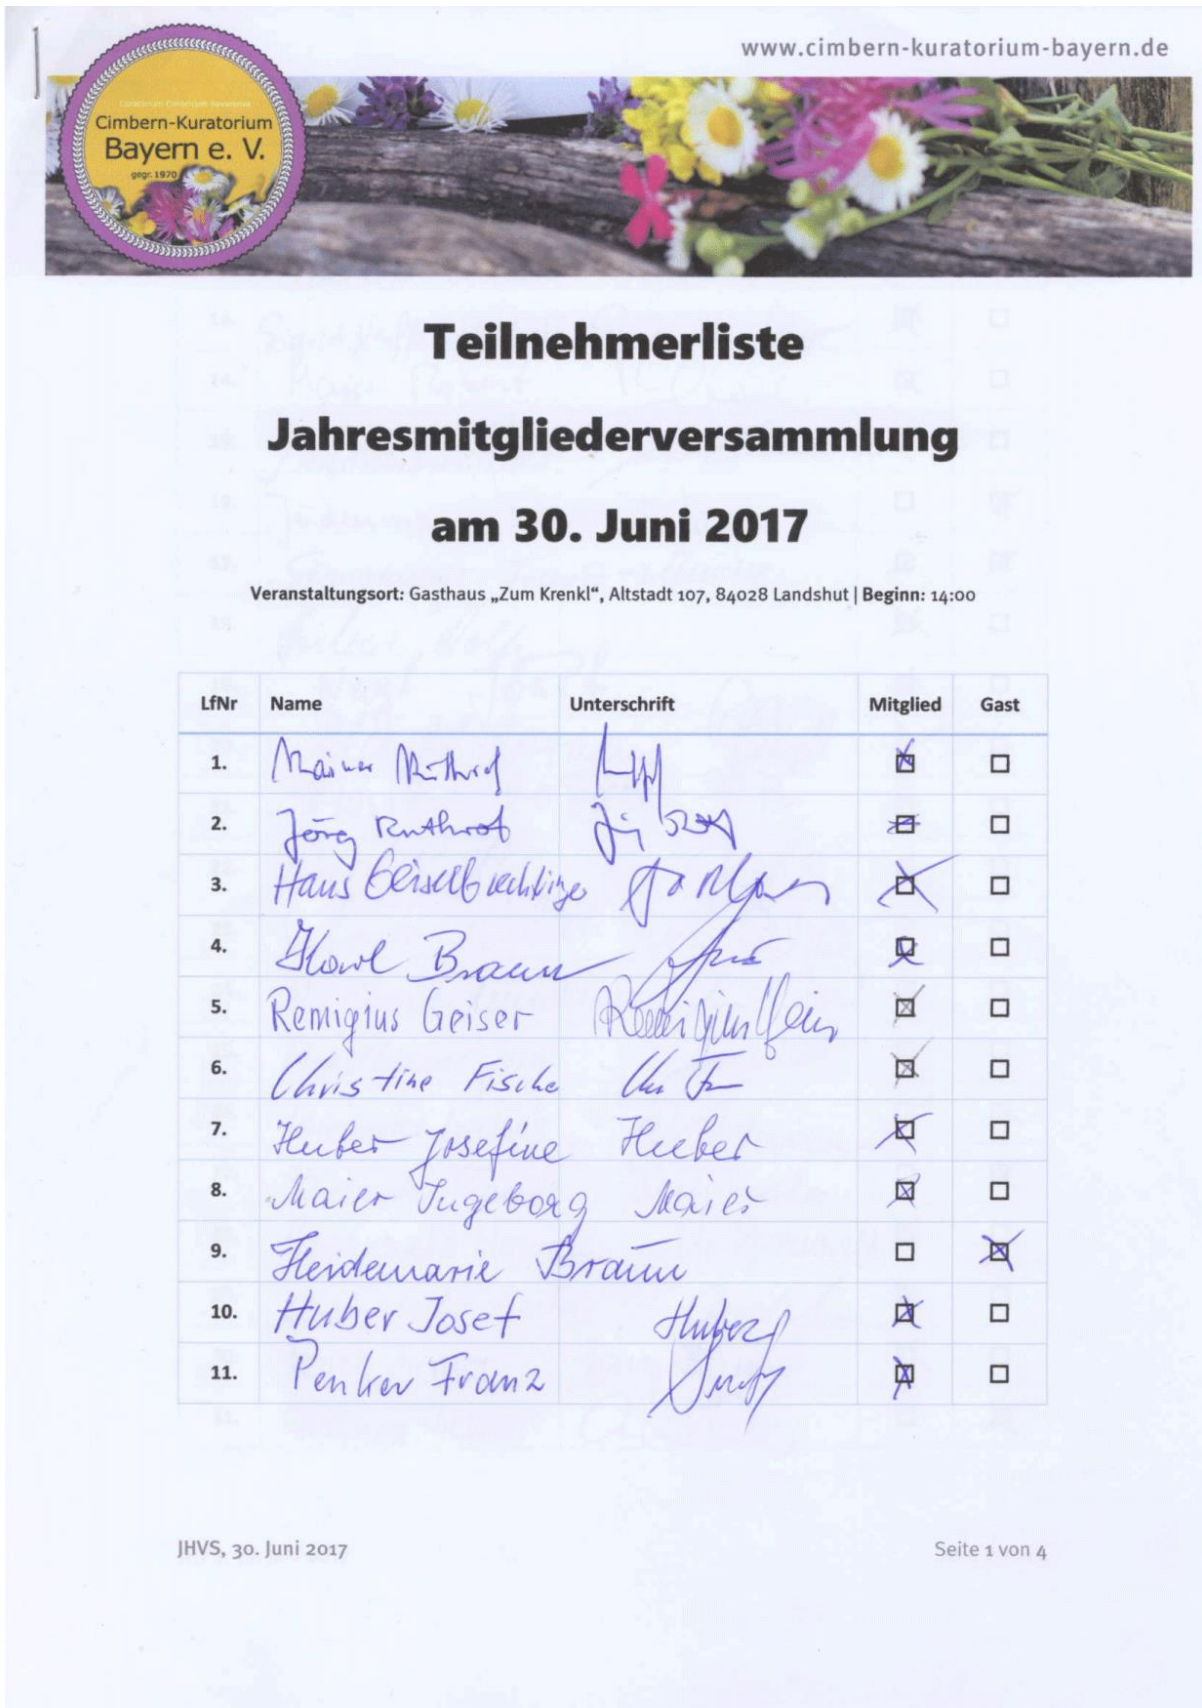 www.cimbern-kuratorium-bayern.de
Curatorium Cimbricum Bavarense
Cimbern-Kuratorium
Bayern e. V.
gegr. 1970
Teilnehmerliste
Jahresmitgliederversammlung
am 30. Juni 2017
Veranstaltungsort: Gasthaus „Zum Krenkl“, Altstadt 107, 84028 Landshut | Beginn: 14:00
LfNr Name Unterschrift Mitglied Gast
1.
2. Jörg Ruthrof
3. Hans
4. Karl Braun
5. Remigius Geiser Remigius Geiser
6. Christine Fische
7. Huber Josefine Huber
8. Maier Ingeborg Maier
9. Heidemarie Braun
10. Huber Josef Huber
11. Penker Franz
JHVS, 30. Juni 2017 Seite 1 von 4